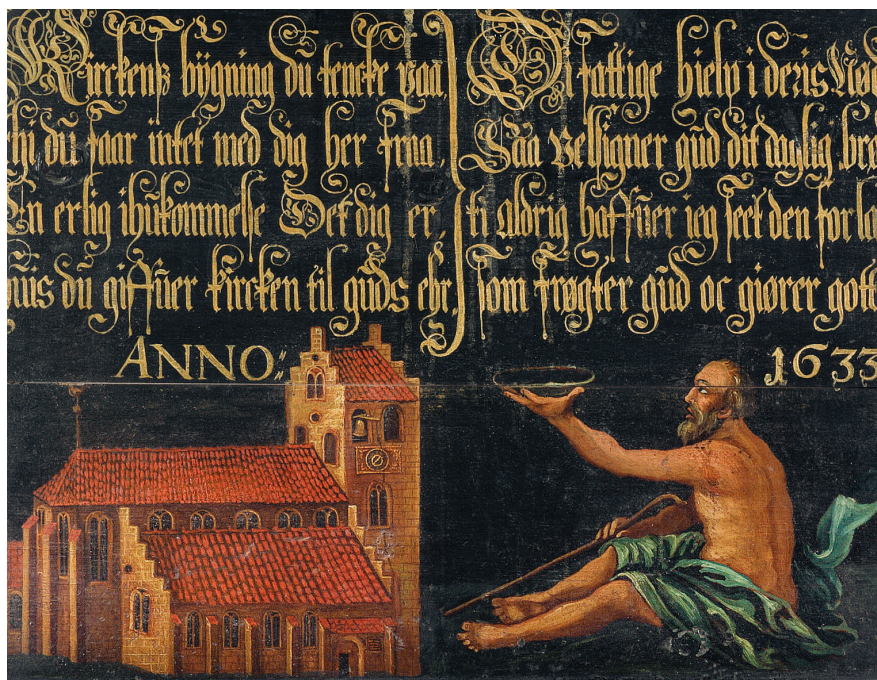 Kirckenß bÿgning dü tencke paa,
hj dü faar intet med dig her fraa,
En erlig ihükommelse Det dig er,
üis dü giffüer kircken til güds ehr,
Di fattige hielp i deris Nød
Saa Velsigner güd dit daylig brø
ti aldrig haffüer ieg seet den forla
som frøgter güd oc giører gott
ANNO:
1633